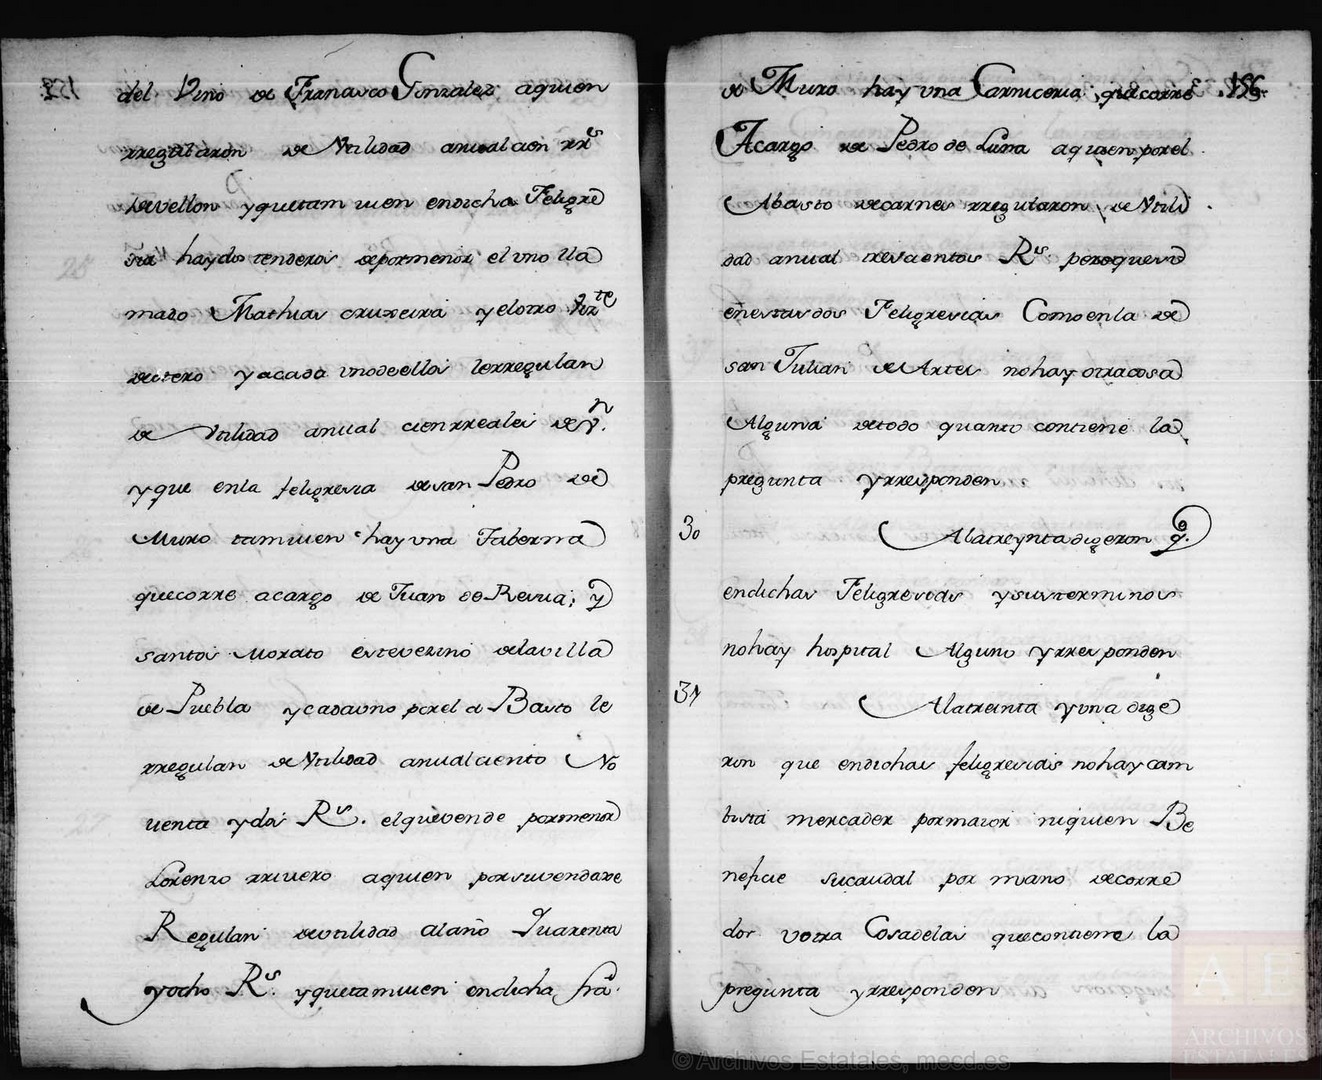 del Vino de Franco Gonzalez aquien
rregularon de Vtilidad anual cien rrs
devellon yquetamvien endicha Feligre
sia haydos tenderos depormenor el vno lla
mado Mathias cruxeira yelotro Vizte
deotero yacada vnodeellos lerregulan
de Vtilidad anual cienrreales de Vn.
yque enla feligresia desan Pedro de
Muro tamvien hay vna Taberna
quecorre acargo de Juan de Resua; y
santos Morato estevezino delavilla
de Puebla ycadavno porel a Basto le
rregulan de Vtilidad anual ciento No
venta ydos Rs. elquevende pormenor
Lorenzo rrivero aquien porsuvendaxe
Regulan deutilidad alaño Quarenta
yocho Rs. yquetamvien endicha fra.
156
de Muro hay vna Carniceria, quecorre
Acargo de Pedro de Luna aquienporel
Abasto decarnes rregularon de Vtili
dad anual trescientos Rs peroqueen
enestasdos Feligresias Comoenla de
san Julian de Artes nohay otracosa
Alguna detodo quanto contiene la
pregunta yrresponden
30 Alatreynta digeron q.
endichas Feligresias ysusterminos
nohay hospital Alguno yrresponden
31 Alatreinta yvna dige
ron que endichas feligresias nohaycam
bista mercader pormaior niquien Be
neficie sucaudal por mano decorre
dor votra Cosadelas quecontiene la
pregunta yrresponden
AE
ARCHIVOS
ESTATALES
© Archivos Estatales, mecd.es